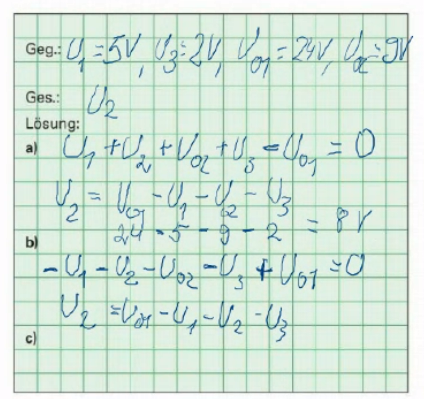 Geg.: U₁=5V, U₃=2V, U₀₁=24V, U₀₂=9V
Ges.: U₂
Lösung:
a) U₁+U₂+U₀₂+U₃-U₀₁=0
U₂ = U₀₁-U₁-U₀₂-U₃
24-5-9-2 = 8V
b)
-U₁-U₂-U₀₂-U₃+U₀₁=0
U₂=U₀₁-U₁-U₂-U₃
c)